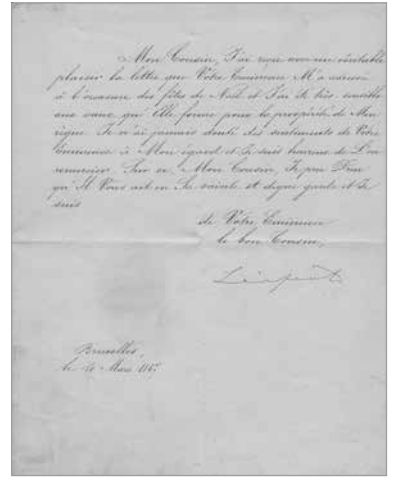 Mon Cousin, J'ai reçu avec un véritable
plaisir la lettre que Votre Eminence M'a adressée
à l'occasion des fêtes de Noël et J'ai été très sensible
aux vœux qu'Elle forme pour la prospérité de Mon
règne. Je n'ai jamais douté des sentiments de Votre
Eminence à Mon égard et Je suis heureux de L'en
remercier. Sur ce, Mon Cousin, Je prie Dieu
qu'Il Vous ait en Sa sainte et digne garde et Je
suis
de Votre Eminence
le bon Cousin,
Léopold
Bruxelles,
le Mars